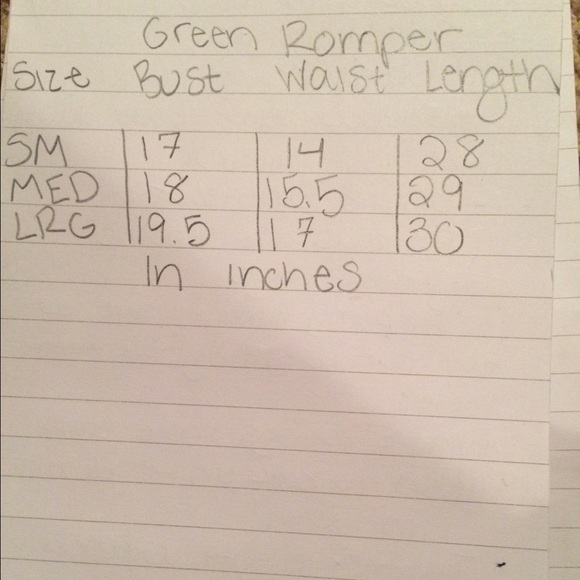 Green Romper
Size Bust Waist Length
SM 17 14 28
MED 18 15.5 29
LRG 19.5 17 30
In inches